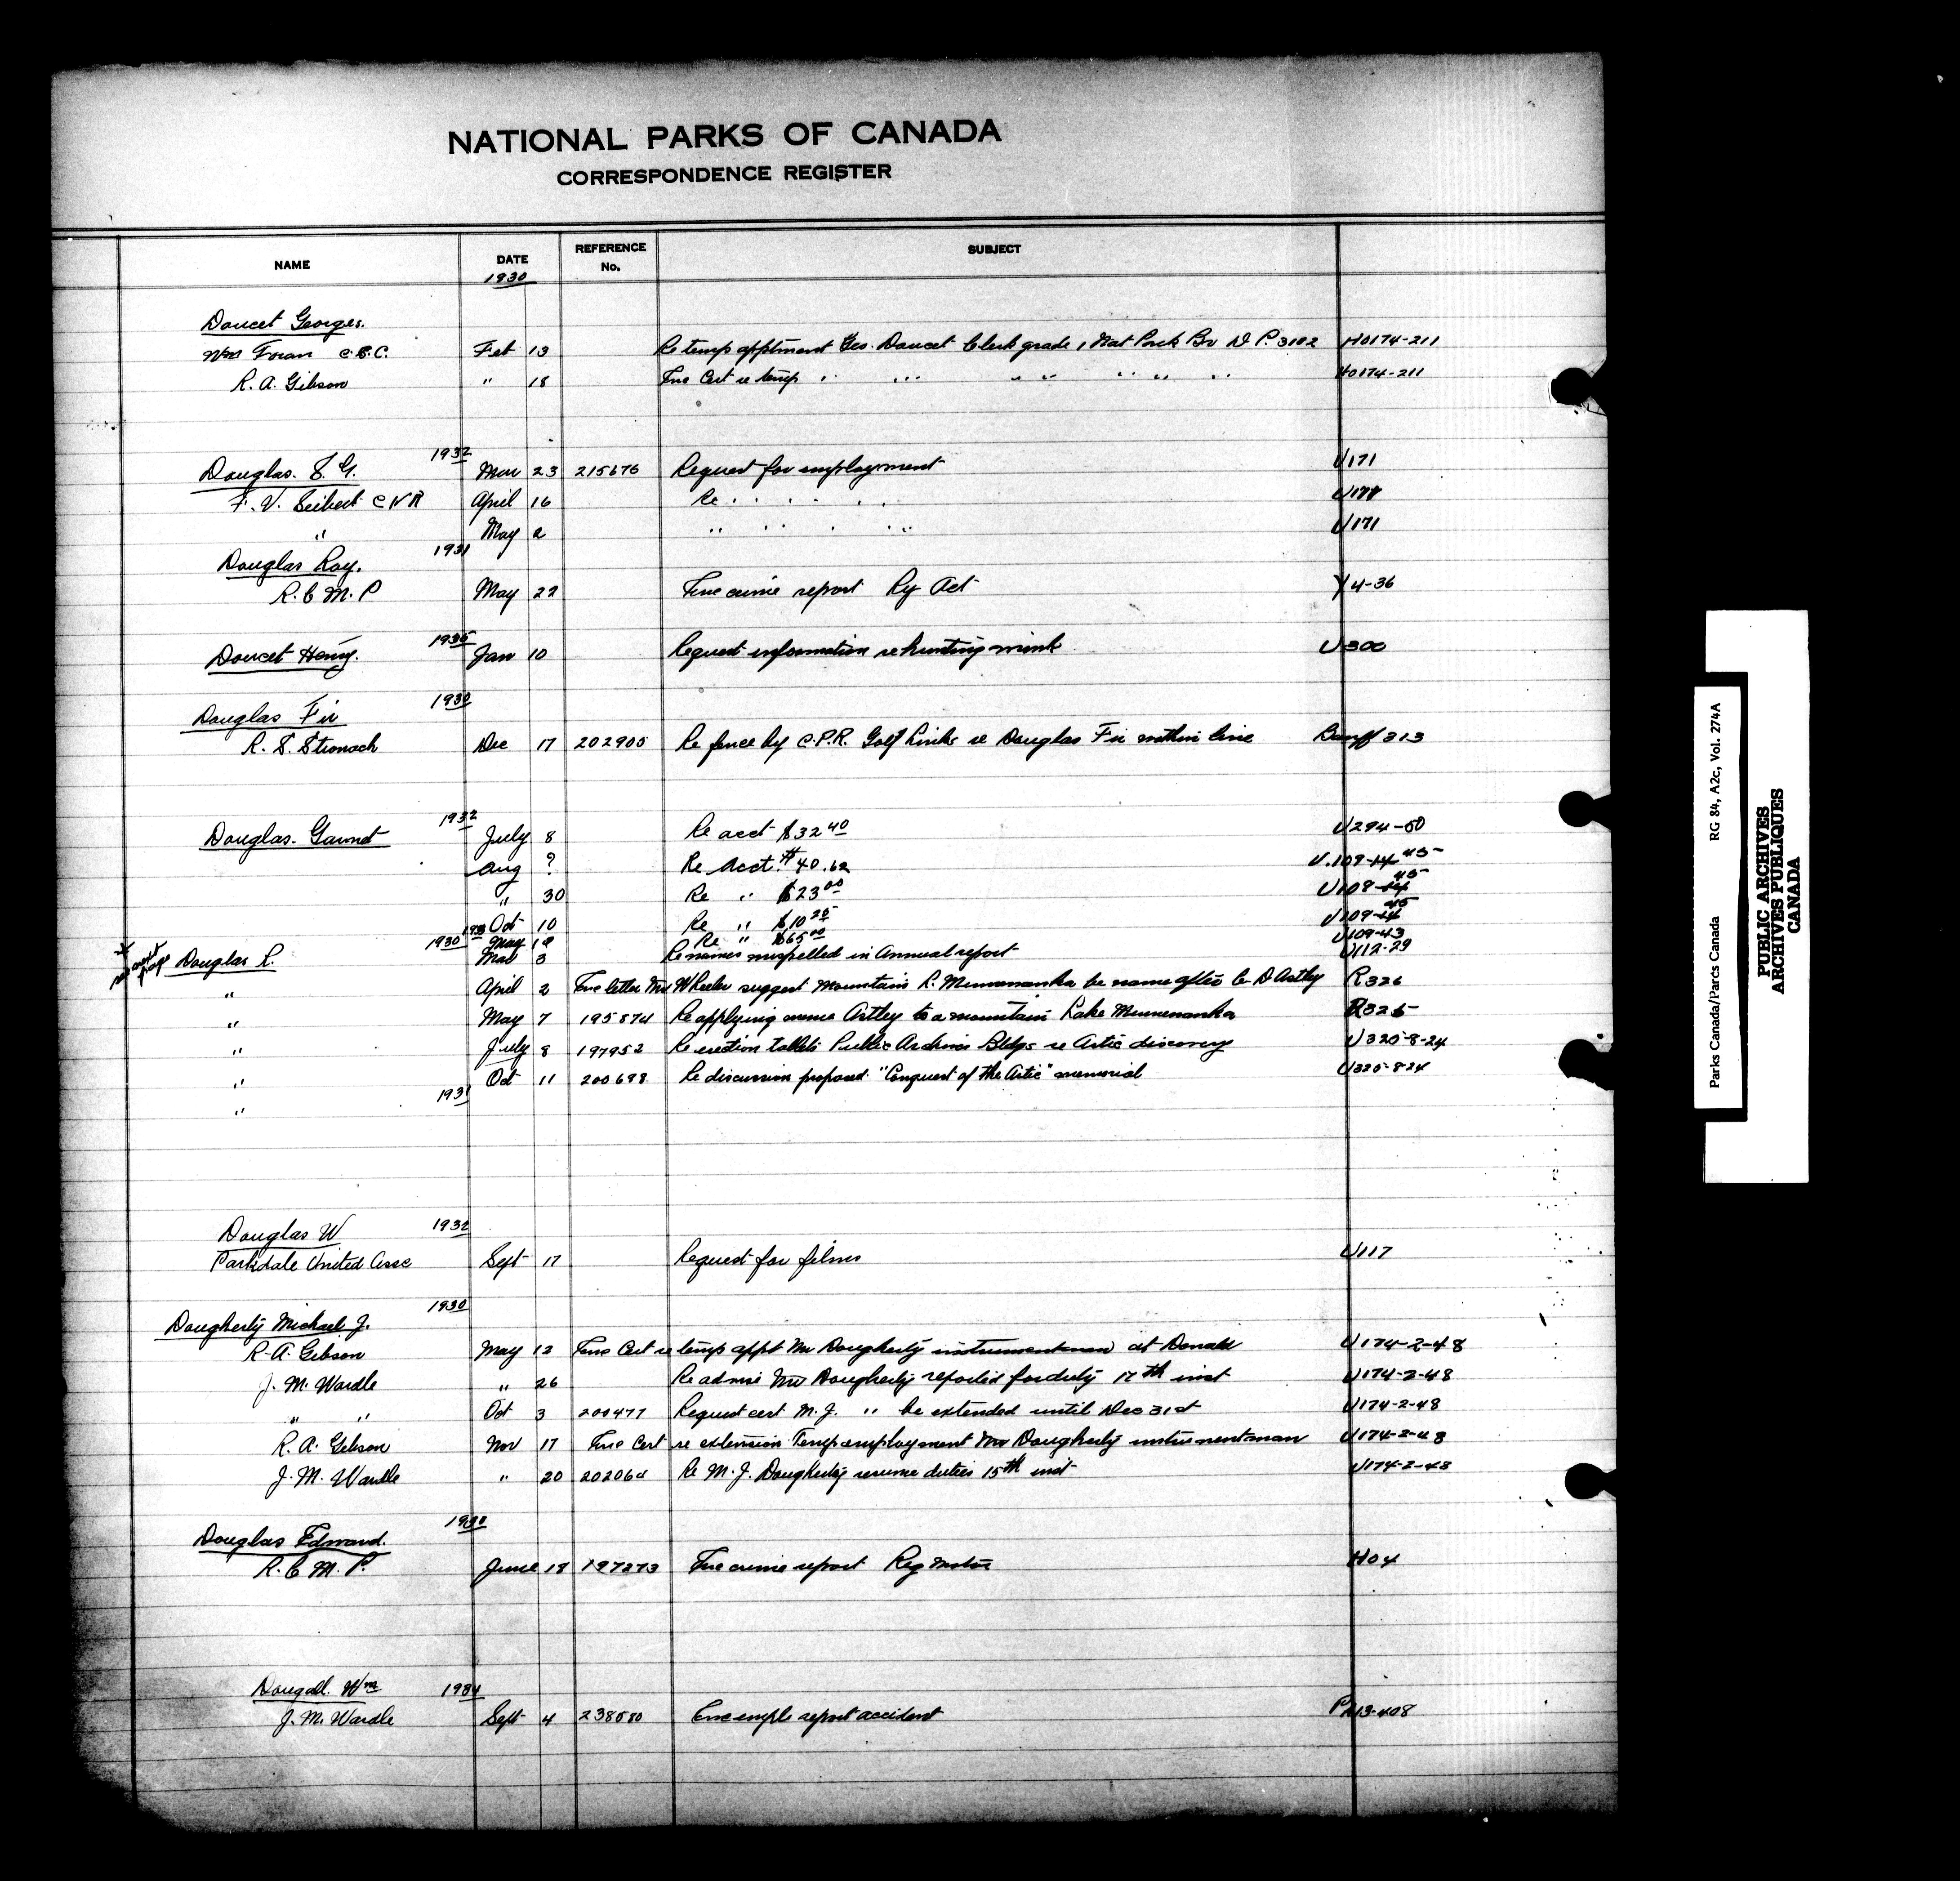 NATIONAL PARKS OF CANADA
CORRESPONDENCE REGISTER
NAME DATE REFERENCE No. SUBJECT
1930
Doucet Georges.
Wm Foran C.S.C. Feb 13 Re temp apptment Geo. Doucet Clerk grade 1 Nat Park Br N.P. 3102 H0174-211
R. A. Gibson " 18 Enc Cert re temp " " " " " " " " H0174-211
Douglas. S. G. 1932 Mar 23 215676 Request for employment U171
F. V. Seibert C N R April 16 Re " " " " " U171
" May 2 " " " " " U171
Douglas Roy. 1931
R. C M. P May 22 Enc crime report Ry Act Y4-36
Doucet Henry. 1935 Jan 10 Request information re hunting mink U300
Douglas Fir 1930
R. S. Stronach Dec 17 202905 Re fence by C.P.R. Golf Links re Douglas Fir within line Banff 313
Douglas. Garnet 1932 July 8 Re acct $32 40 U294-50
Aug ? Re Acct. # 40.62 U.109-14 43
" 30 Re " $23 00 U109-14 43
Oct 10 Re " $10 25 U109-14 43
193 May 18 Re " $65 00 U109-43
see next page Douglas R. 1930 Mar 3 Re names mispelled in Annual report U112-29
" April 2 Enc letter Mr Wheeler suggest mountains L. Minnewanka be name after C D Astley R326
" May 7 195874 Re applying name Astley to a mountain Lake Minnewanka R325
" July 8 197952 Re erection tablets Public Archives Bldgs re Artic discovery U325-8-24
" Oct 11 200698 Re discussion proposed "Conquest of the Artic" memorial U325-8-24
" 1931
Douglas W 1932
Parkdale United Assc Sept 17 Request for films U117
Dougherty Michael J. 1930
R. A. Gibson May 12 Enc Cert re temp appt Mr Dougherty instrumentman at Donald U174-2-48
J. M. Wardle " 26 Re advise Mr Dougherty reported for duty 17th inst U174-2-48
" " Oct 3 200477 Request cert M. J. " be extended until Dec 31st U174-2-48
R. A. Gibson Nov 17 Enc Cert re extension Temp employment Mr Dougherty instrumentman U174-2-48
J. M. Wardle " 20 202064 Re M. J. Dougherty resume duties 15th inst U174-2-48
Douglas Edward. 1930
R. C M. P. June 18 197273 Enc crime report Reg Motor H04
Dougall. Wm 1934
J. M. Wardle Sept 4 238580 Enc empl. report accident P213-408
Parks Canada/Parcs Canada RG 84, A2c, Vol. 274A
PUBLIC ARCHIVES
ARCHIVES PUBLIQUES
CANADA